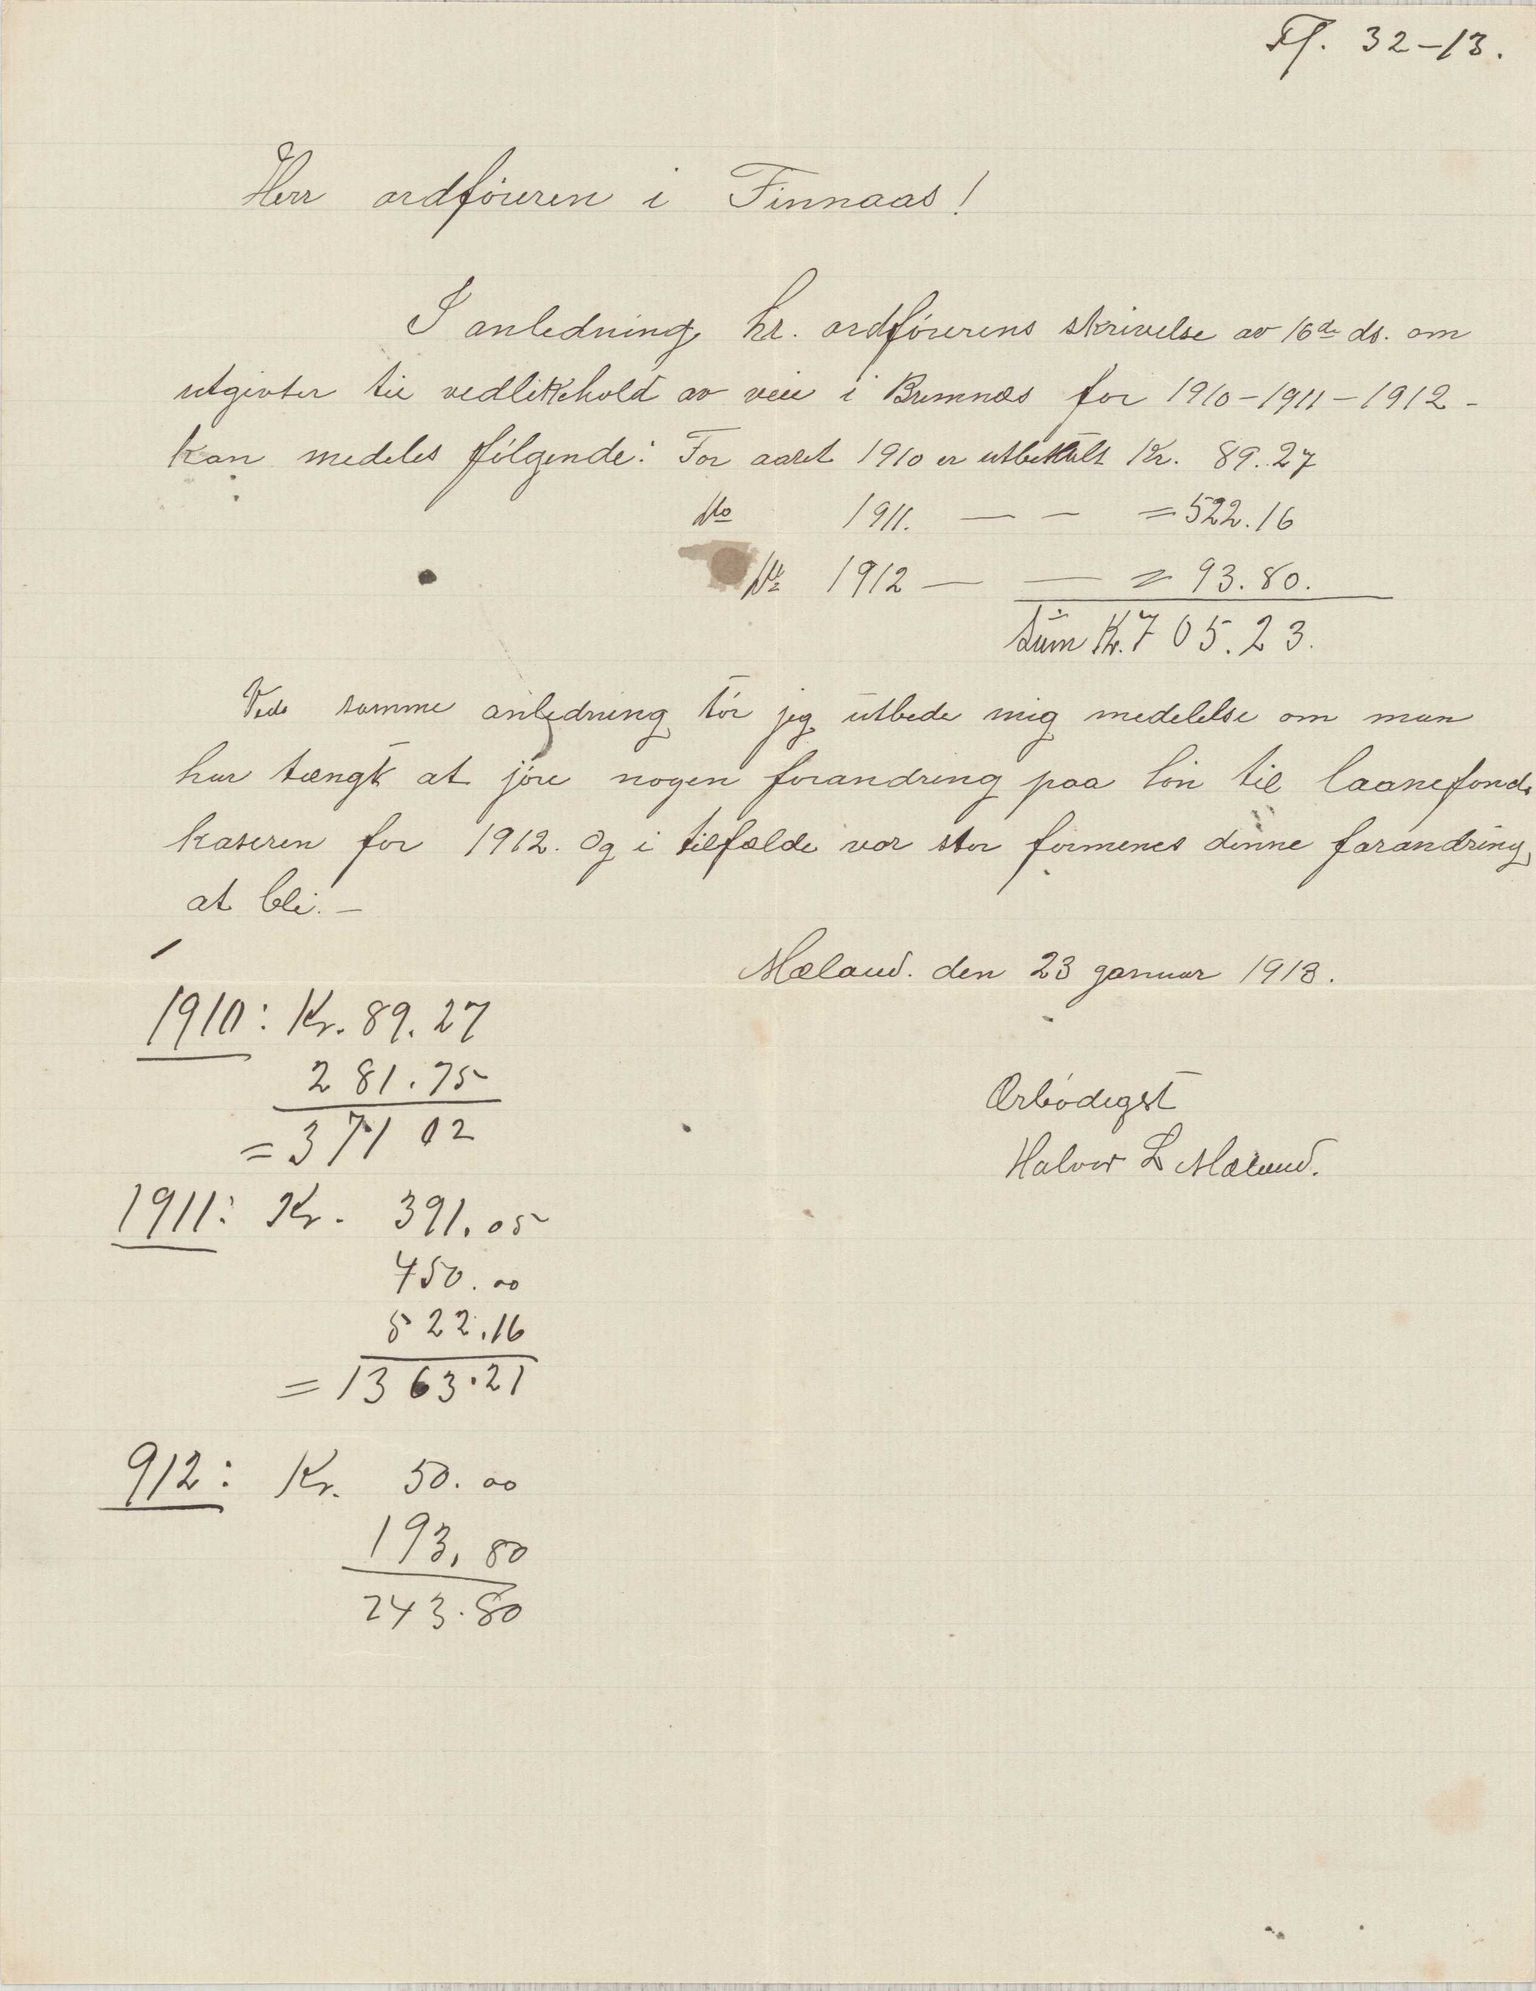 Ff. 32-13.
Herr ordföreren i Finnaas!
I anledning hr. ordförerens skrivelse av 16de ds. om
utgivter til vedlikehold av veie i Bremnæs for 1910-1911-1912-
kan medeles følgende: For aaret 1910 er utbetalt Kr. 89.27
Do 1911. — - = 522.16
Do 1912 — — = 93.80.
sum Kr. 705.23.
Ved samme anledning tör jeg utbede mig medelelse om man
har tængk at jöre nogen forandring paa lön til laanefonds
kaseren for 1912. Og i tilfælde vor stor formenes denne forandring
at bli. —
Mæland. den 23 januar 1913.
Ærbödigst
Halvor L Mæland.
1910: Kr. 89.27
281.75
= 371 02
1911: Kr. 391.05
450.00
522.16
= 1363.21
912: Kr. 50.00
193.80
243.80